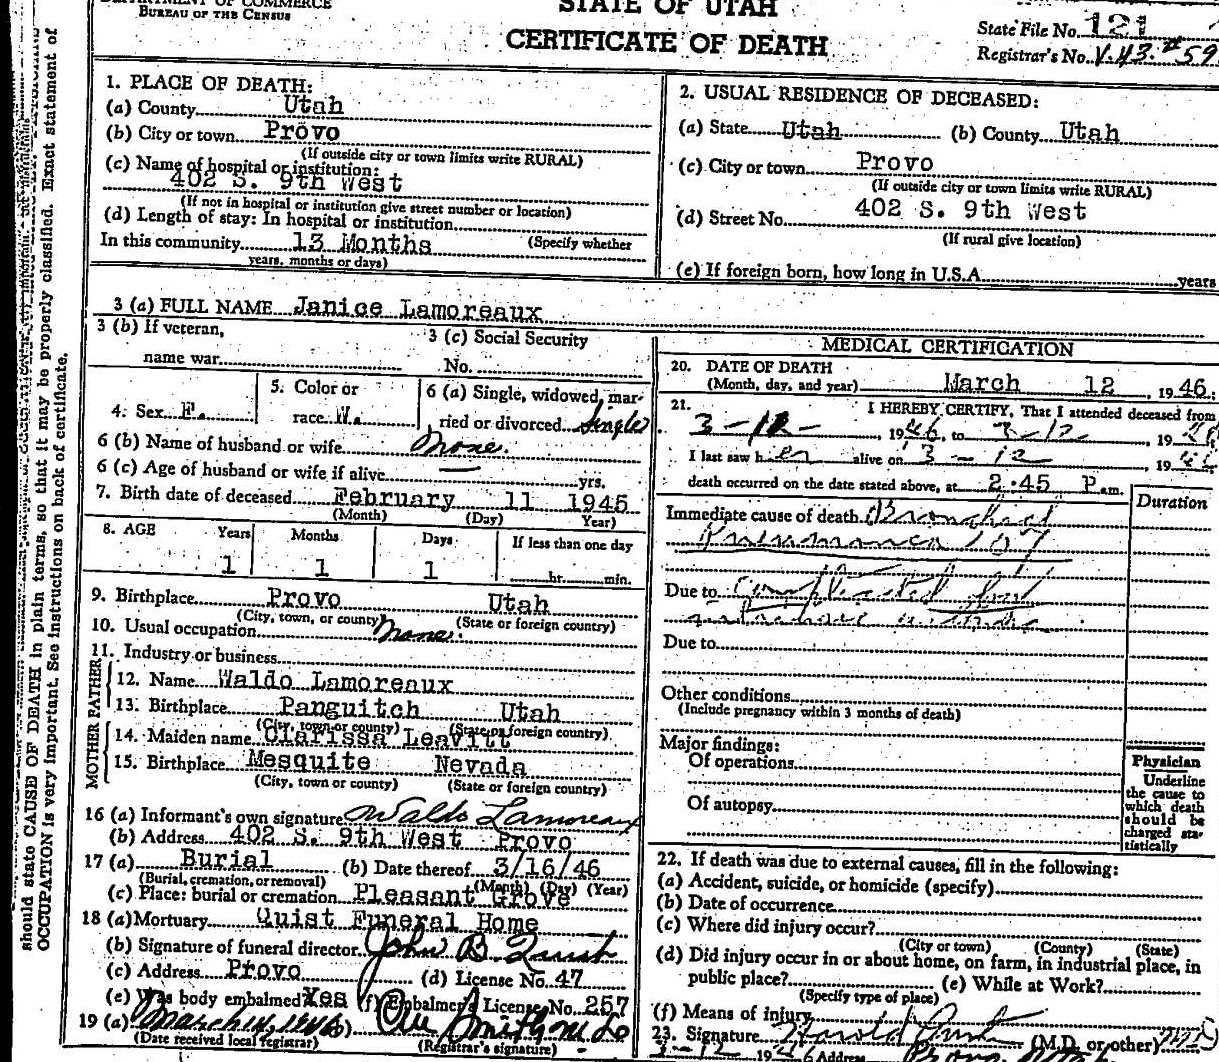 DEPARTMENT OF COMMERCE
BUREAU OF THE CENSUS
STATE OF UTAH
CERTIFICATE OF DEATH
State File No. 121
Registrar's No. V.43.#59
1. PLACE OF DEATH:
(a) County Utah
(b) City or town Provo
(If outside city or town limits write RURAL)
(c) Name of hospital or institution:
402 S. 9th West
(If not in hospital or institution give street number or location)
(d) Length of stay: In hospital or institution
In this community 13 Months (Specify whether
years, months or days)
2. USUAL RESIDENCE OF DECEASED:
(a) State Utah (b) County Utah
(c) City or town Provo
(If outside city or town limits write RURAL)
(d) Street No. 402 S. 9th West
(If rural give location)
(e) If foreign born, how long in U.S.A. years
3 (a) FULL NAME Janice Lamoreaux
3 (b) If veteran,
name war
3 (c) Social Security
No.
4. Sex F.
5. Color or
race W.
6 (a) Single, widowed, mar-
ried or divorced Single
6 (b) Name of husband or wife None.
6 (c) Age of husband or wife if alive — yrs.
7. Birth date of deceased February 11 1945
(Month) (Day) Year)
8. AGE Years Months Days If less than one day
1 1 1 hr. min.
9. Birthplace Provo Utah
(City, town, or county) (State or foreign country)
10. Usual occupation None.
11. Industry or business
FATHER
12. Name Waldo Lamoreaux
13. Birthplace Panguitch Utah
(City, town or county) (State or foreign country)
MOTHER
14. Maiden name Clarissa Leavitt
15. Birthplace Mesquite Nevada
(City, town or county) (State or foreign country)
16 (a) Informant's own signature Waldo Lamoreaux
(b) Address 402 S. 9th West Provo
17 (a) Burial (b) Date thereof 3/16/46
(Burial, cremation, or removal) (Month) (Day) (Year)
(c) Place: burial or cremation Pleasant Grove
18 (a) Mortuary Quist Funeral Home
(b) Signature of funeral director John B. Quist
(c) Address Provo (d) License No. 47
(e) Was body embalmed Yes (f) Embalmer's License No. 257
19 (a) March 14, 1946 (b)
(Date received local registrar) (Registrar's signature)
MEDICAL CERTIFICATION
20. DATE OF DEATH
(Month, day, and year) March 12, 1946.
21. I HEREBY CERTIFY, That I attended deceased from
3-12-, 1946, to 3-12, 1946
I last saw her alive on 3-12, 1946
death occurred on the date stated above, at 2:45 P.m.
Duration
Immediate cause of death Bronchial
Pneumonia 107
Due to Complicated
Due to
Other conditions
(Include pregnancy within 3 months of death)
Major findings:
Of operations
Of autopsy
Physician
Underline
the cause to
which death
should be
charged sta-
tistically
22. If death was due to external causes, fill in the following:
(a) Accident, suicide, or homicide (specify)
(b) Date of occurrence
(c) Where did injury occur?
(City or town) (County) (State)
(d) Did injury occur in or about home, on farm, in industrial place, in
public place? (e) While at Work?
(Specify type of place)
(f) Means of injury
23. Signature Harold (M.D. or other) M.D.
3-12 1946 Address Provo
should state CAUSE OF DEATH in plain terms, so that it may be properly classified. Exact statement of
OCCUPATION is very important. See instructions on back of certificate.